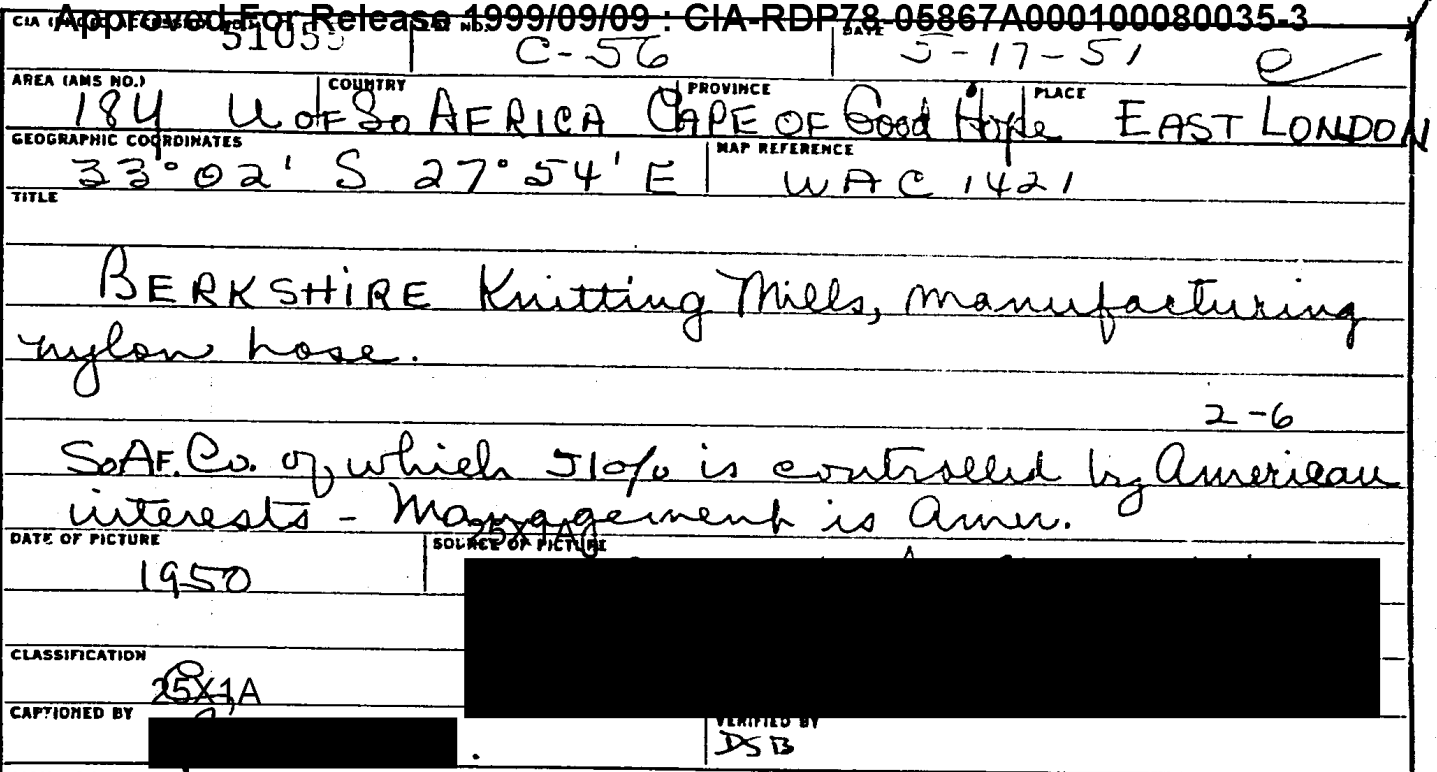 Approved For Release 1999/09/09 : CIA-RDP78-05867A000100080035-3
CIA NO. DATE
C-56 5-17-51
AREA (AMS NO.) COUNTRY PROVINCE PLACE
184 U of So AFRICA CAPE OF Good Hope EAST LONDON
GEOGRAPHIC COORDINATES MAP REFERENCE
33°02' S 27°54' E WAC 1421
TITLE
BERKSHIRE Knitting Mills, manufacturing
nylon hose.
2-6
So.AF. Co. of which 51% is controlled by American
interests - Management is Amer.
DATE OF PICTURE 25X1A SOURCE OF PICTURE
1950
CLASSIFICATION
25X1A
CAPTIONED BY VERIFIED BY
DSB